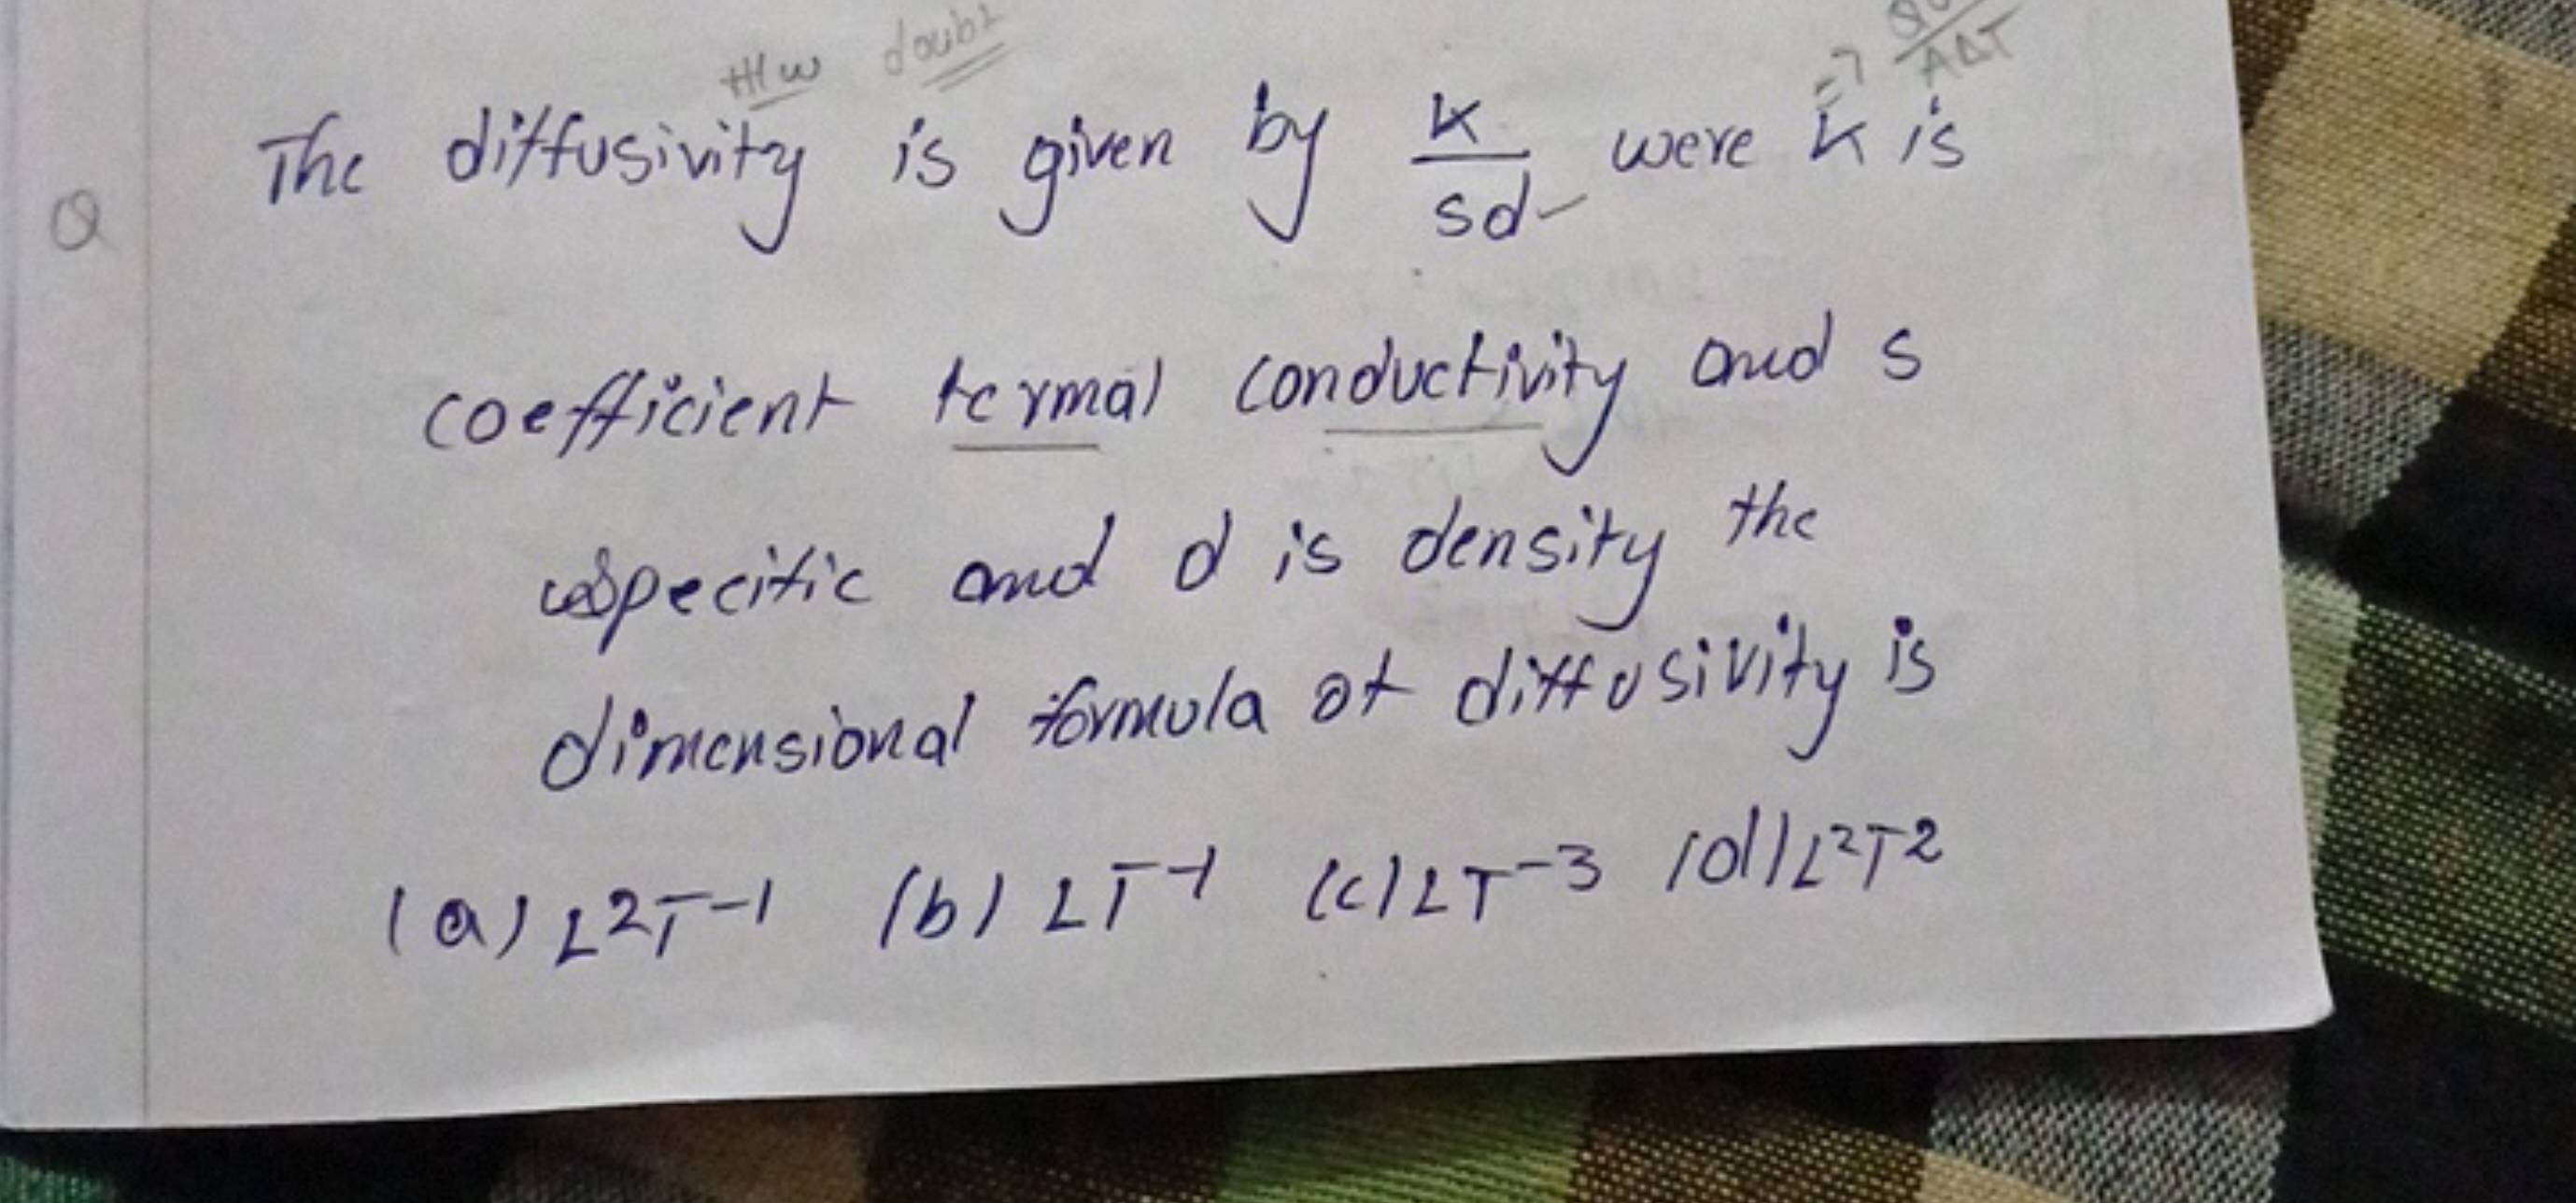 H/w doubt
=> / AΔT
Q The diffusivity is given by K/sd were K is
coefficient termal conductivity and s
specific and d is density the
dimensional formula of diffusivity is
(a) L²T⁻¹ (b) LT⁻¹ (c) LT⁻³ (d) L²T²